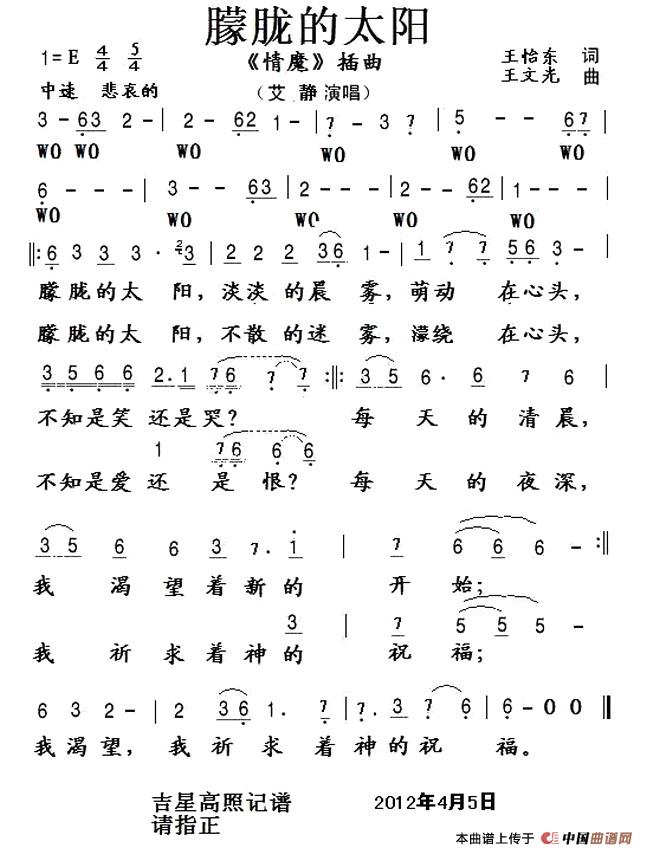 朦胧的太阳
1=E 4/4 5/4 《情魔》插曲 王怡东 词
中速 悲哀的 （艾 静 演唱） 王文光 曲
3 - 63 2 - | 2 - 62 1 - | 7 - 3 7 | 5 - - 67 |
WO WO WO WO WO WO
6 - - | 3 - - 63 | 2 - - 2 | 2 - - 62 | 1 - - |
WO WO WO WO WO
‖: 6 3 3 3 · 2 3 | 2 2 2 36 1 - | 1 7 7 56 3 - |
朦胧的太 阳，淡淡 的晨 雾，萌动 在心头，
朦胧的太 阳，不散 的迷 雾，濛绕 在心头，
3 5 6 6 2 · 1 76 7 7 :‖: 35 6 · 6 7 6 |
不知是笑 还是哭？ 每 天 的 清 晨，
1 76 6 6
不知是爱 还 是 恨？ 每 天 的 夜 深，
35 6 6 3 7 · 1 | 7 6 6 6 - :‖
我 渴 望 着 新 的 开 始；
3 | 7 5 5 5 -
我 祈 求 着 神 的 祝 福；
6 3 2 - | 2 36 1 · 7 | 7 · 3 7 6 6 | 6 - 0 0 ‖
我 渴 望， 我 祈 求 着 神 的 祝 福。
吉星高照记谱 2012年4月5日
请指正
本曲谱上传于 中国曲谱网